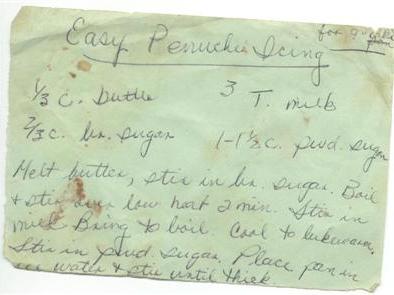 for 9x13 pan
Easy Penuchi Icing
1/3 c. butter 3 T. milk
2/3 c. br. sugar 1-1 1/2 c. pwd. sugar
Melt butter, stir in br. sugar. Boil
& stir over low heat 2 min. Stir in
milk Bring to boil. Cool to lukewarm.
Stir in pwd. sugar. Place pan in
water & stir until thick.